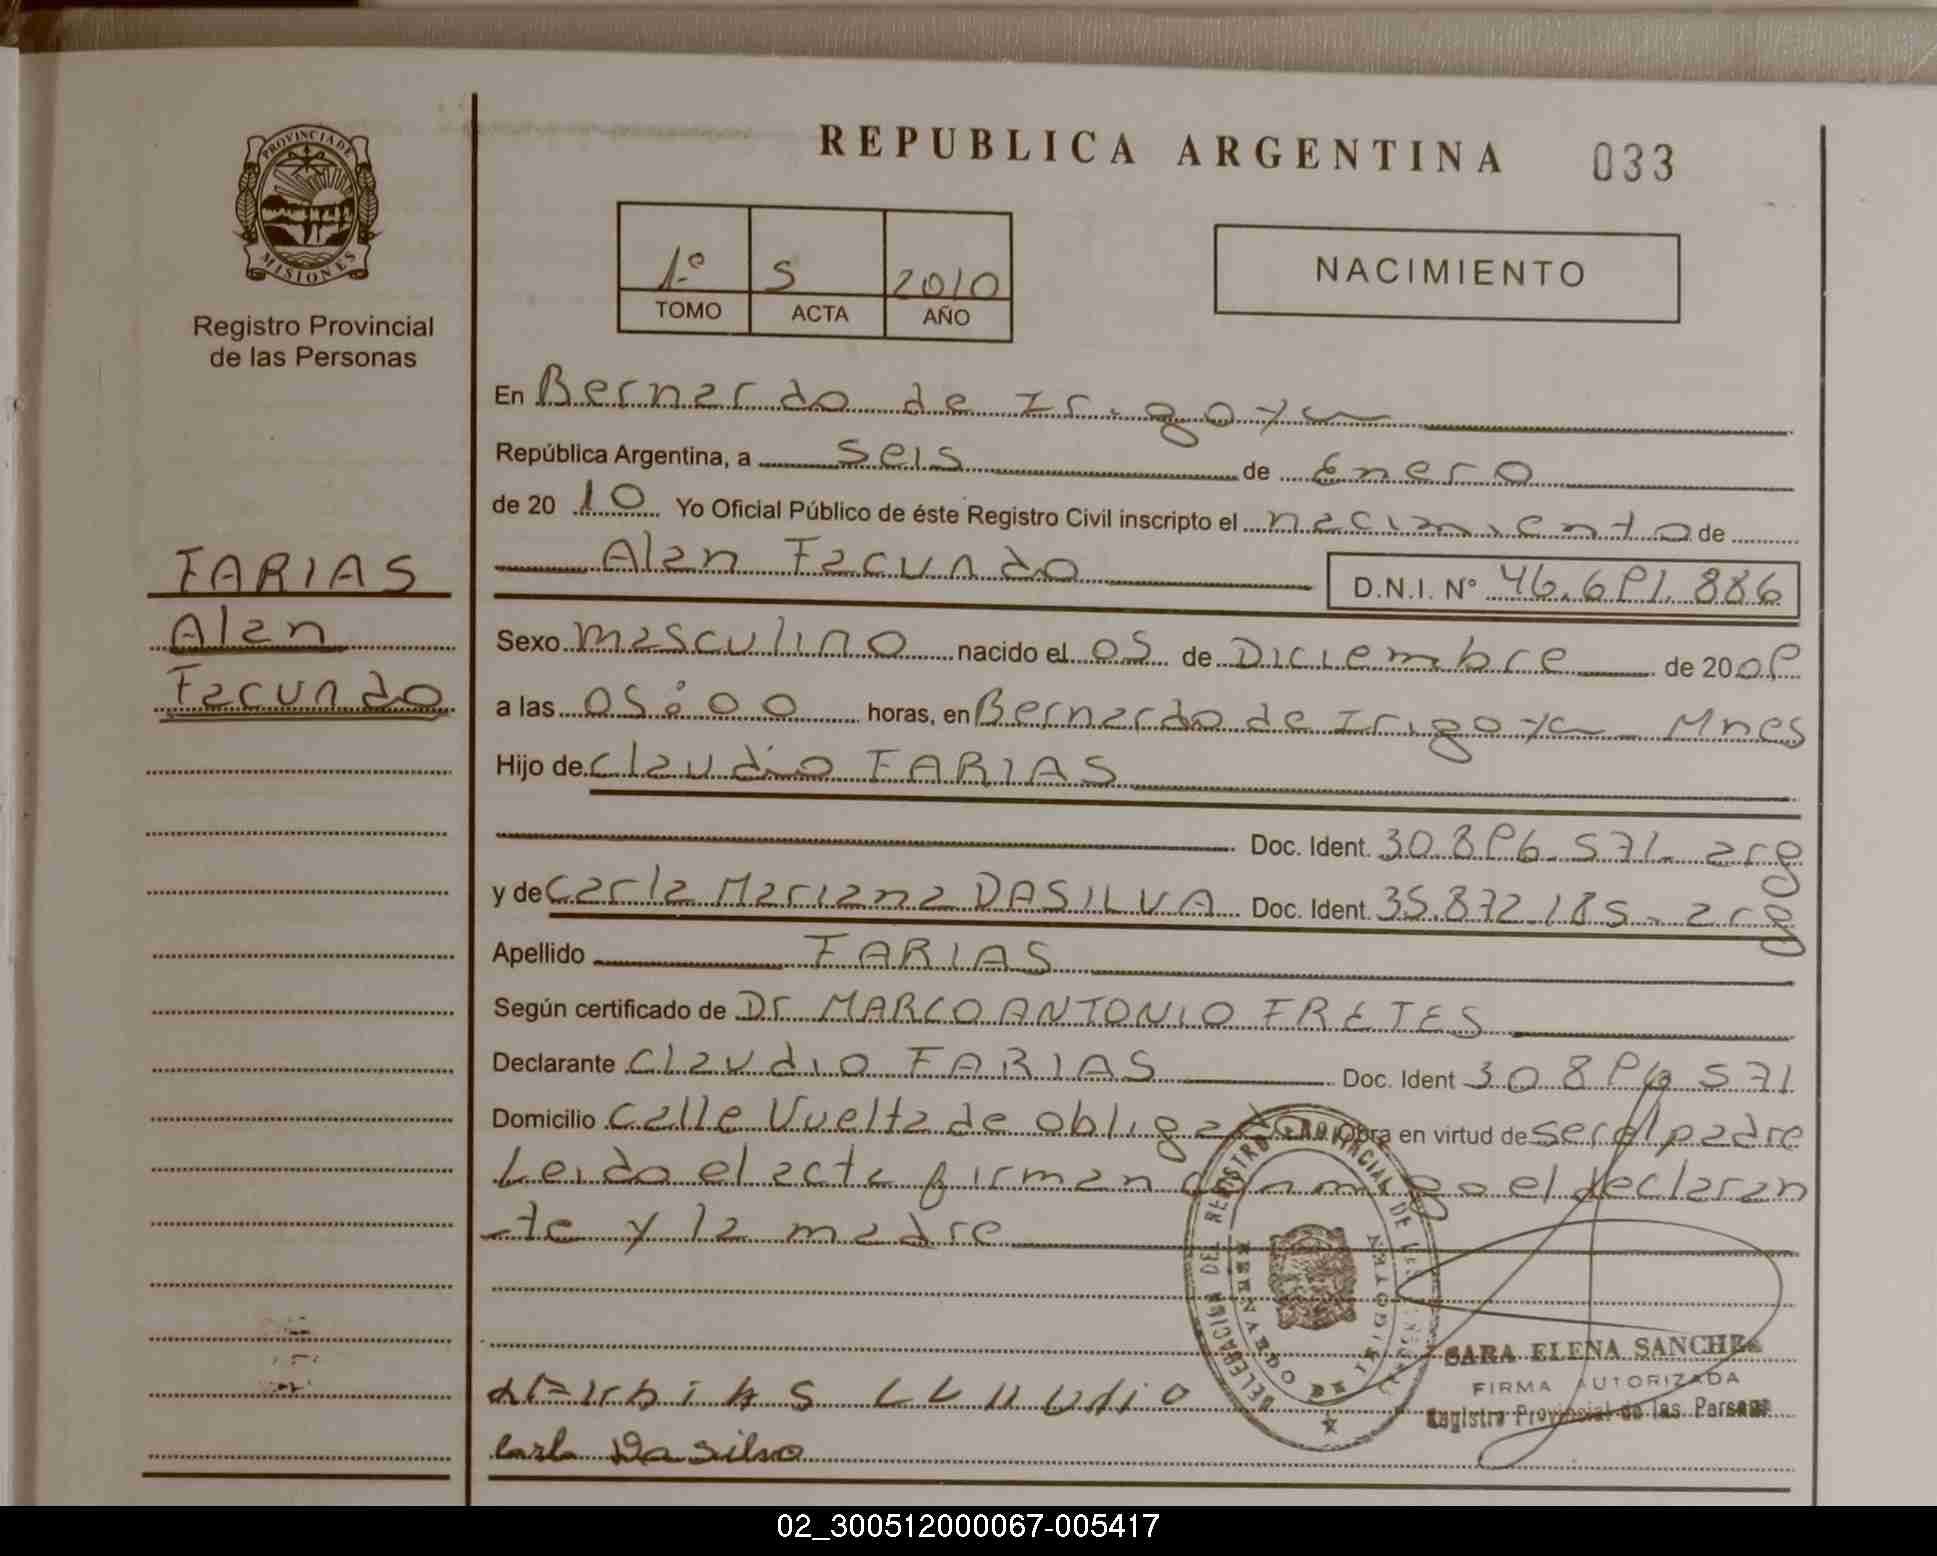 PROVINCIA DE
MISIONES
Registro Provincial
de las Personas
REPUBLICA ARGENTINA 033
1º 5 2010
TOMO ACTA AÑO
NACIMIENTO
En Bernardo de Irigoyen
República Argentina, a seis de Enero
de 2010 Yo Oficial Público de éste Registro Civil inscripto el nacimiento de
Alan Facundo D.N.I. Nº 46.691.886
FARIAS
Alan
Facundo
Sexo masculino nacido el 05 de Diciembre de 2009
a las 05:00 horas, en Bernardo de Irigoyen Mnes
Hijo de Claudio FARIAS
Doc. Ident. 30.896.571 - arg
y de Carla Mariana DASILVA Doc. Ident. 35.872.185 - arg
Apellido FARIAS
Según certificado de Dr MARCO ANTONIO FRETES
Declarante Claudio FARIAS Doc. Ident 30896571
Domicilio Calle Vuelta de obligado Obra en virtud de ser el padre
Leido el acta firman conmigo el declaran
te y la madre
DELEGACION DEL REGISTRO PROVINCIAL DE LAS
BERNARDO DE IRIGOYEN
SARA ELENA SANCHEZ
FIRMA AUTORIZADA
Registro Provincial de las Personas
Carla Da silva
02_300512000067-005417